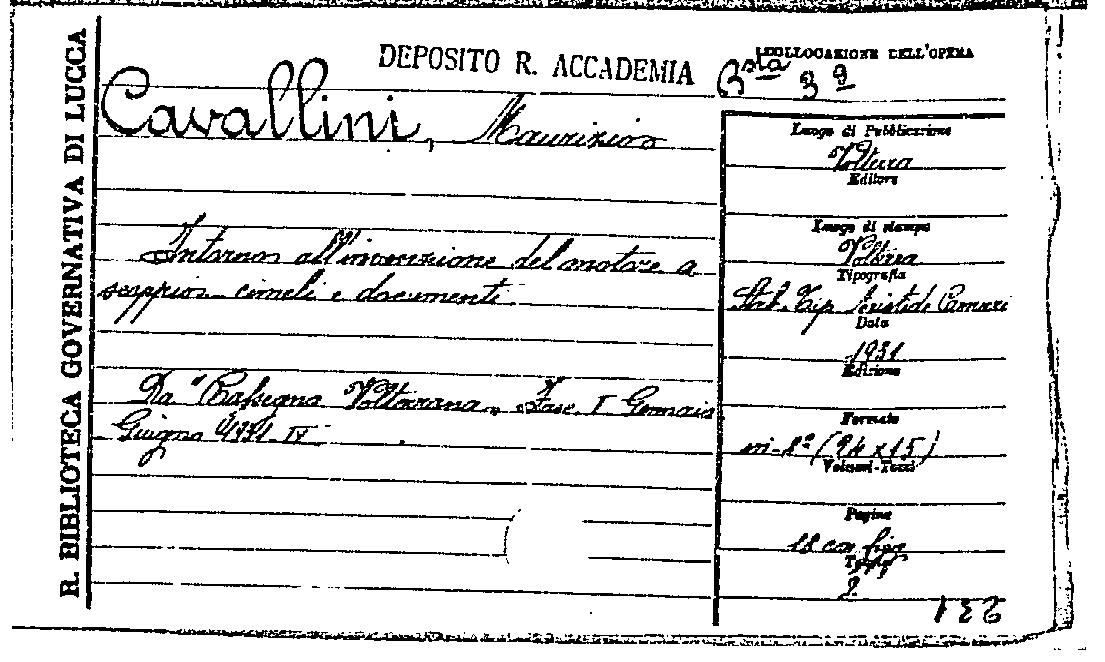 R. BIBLIOTECA GOVERNATIVA DI LUCCA
DEPOSITO R. ACCADEMIA
COLLOCAZIONE DELL'OPERA
Bsta 3ª
Cavallini, Maurizio
Intorno all'invenzione del motore a
scoppio cimeli e documenti.
Da "Rassegna Volterrana" Fasc. I Gennaio
Giugno 1931-IX
Luogo di Pubblicazione
Volterra
Editore
Luogo di stampa
Volterra
Tipografia
Stab. Tip. Aristide Carnieri
Data
1931
Edizione
Formato
in-8º (24 x 15)
Volumi-Tomi
Pagine
18 con fig.